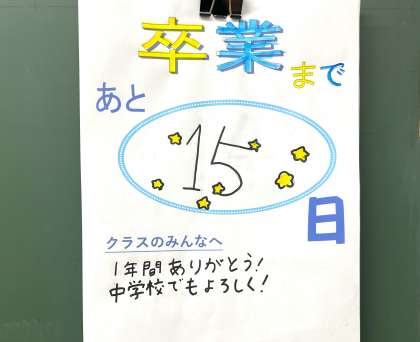 卒業まで
あと
15
日
クラスのみんなへ
1年間ありがとう!
中学校でもよろしく!